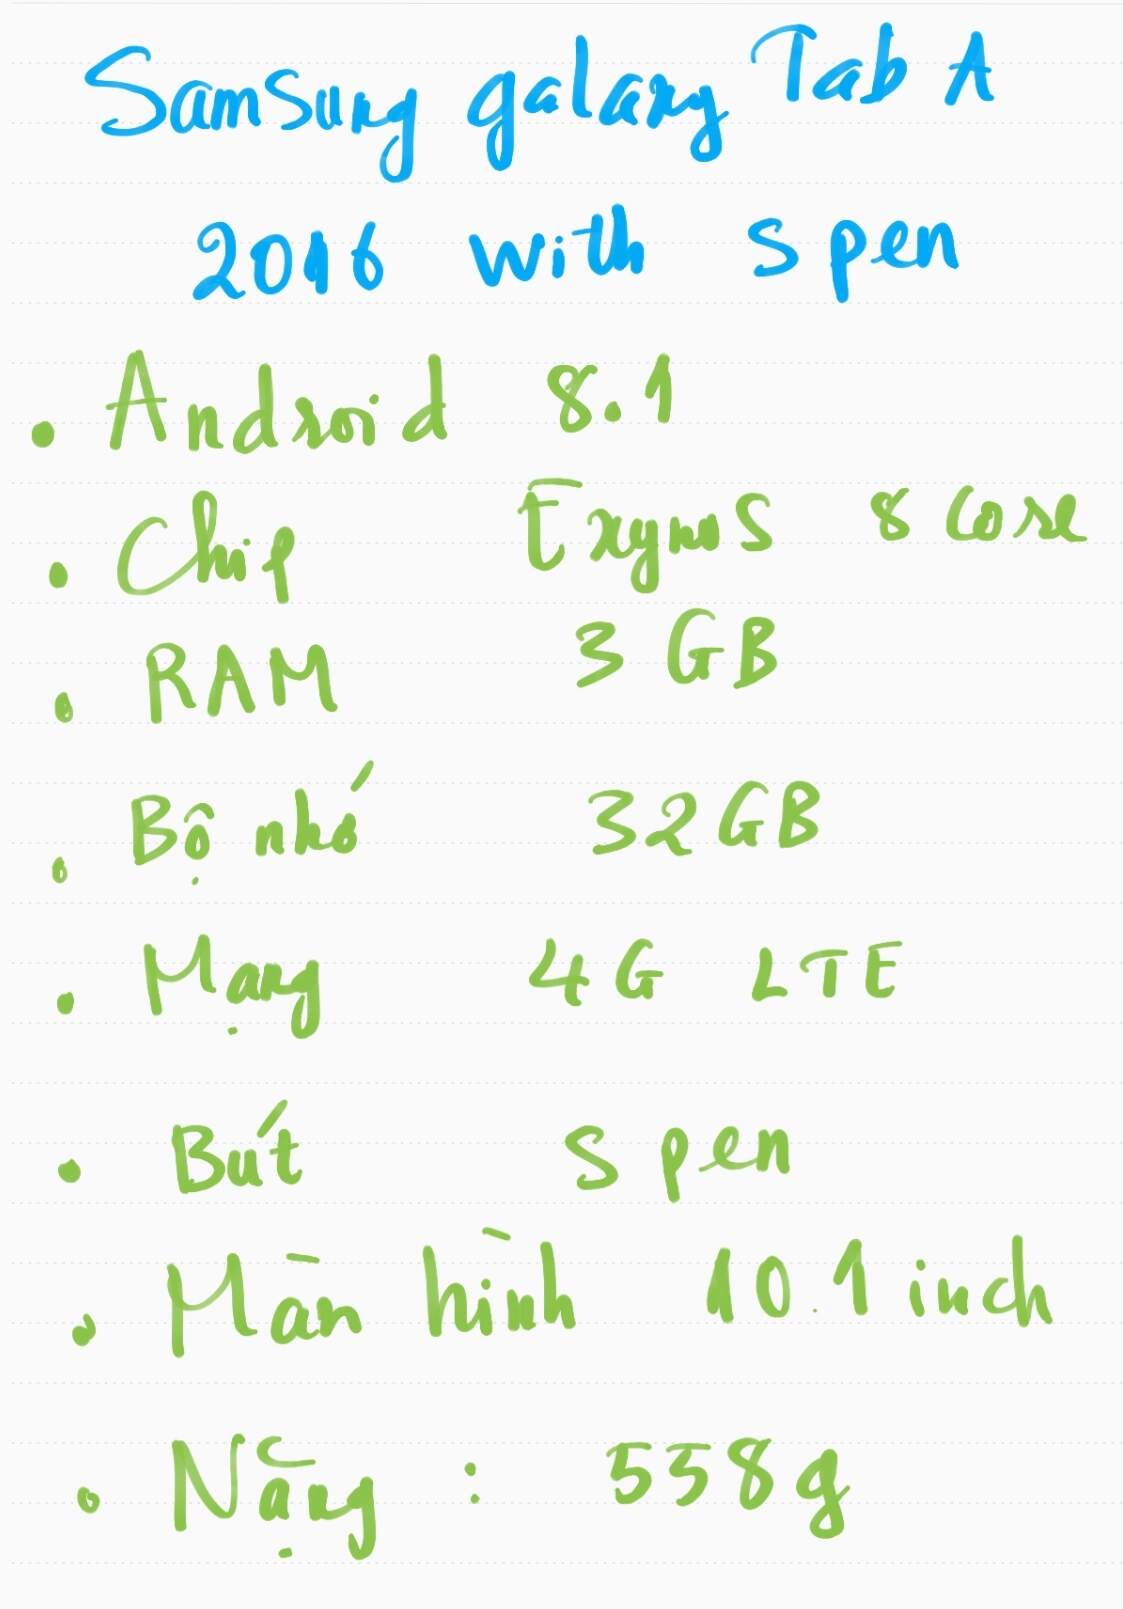 Samsung galaxy Tab A
2016 with s pen
• Android 8.1
• Chip Exynos 8 Core
• RAM 3 GB
• Bộ nhớ 32GB
• Mạng 4G LTE
• Bút S pen
• Màn hình 10.1 inch
• Nặng : 558g